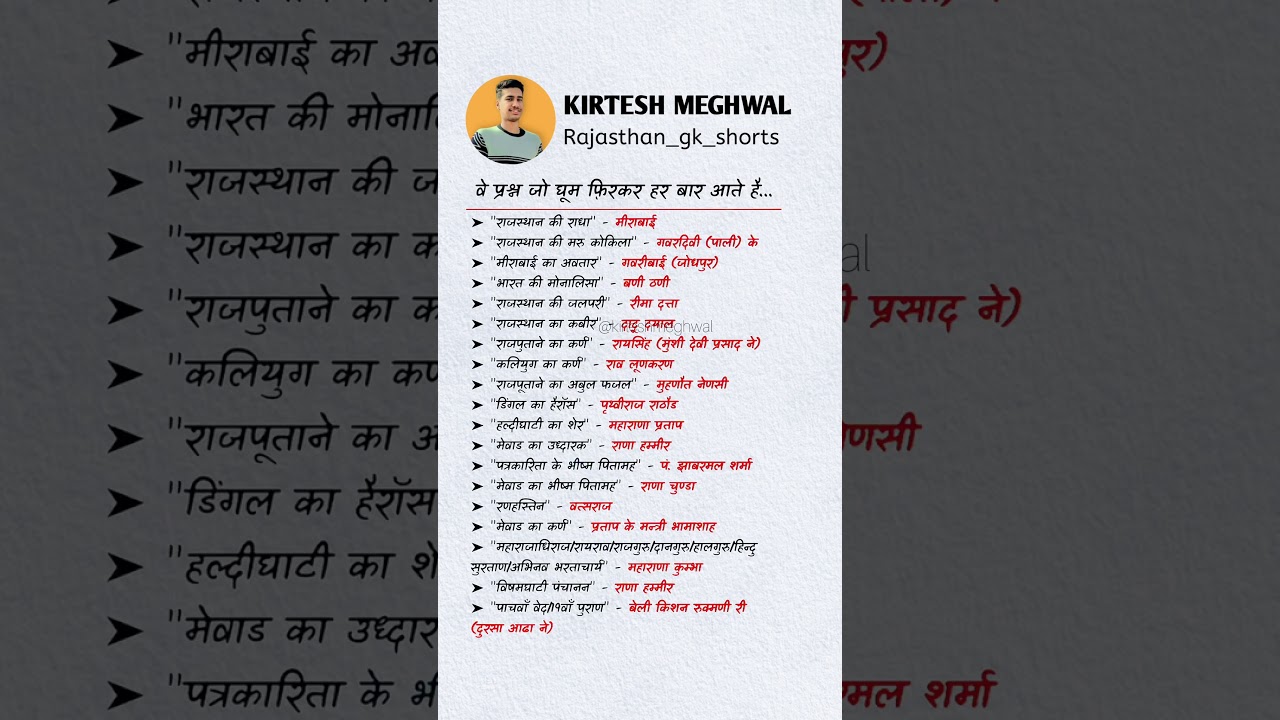 KIRTESH MEGHWAL
Rajasthan_gk_shorts
वे प्रश्न जो घूम फ़िरकर हर बार आते है...
➤ "राजस्थान की राधा" - मीराबाई
➤ "राजस्थान की मरु कोकिला" - गवरदिवी (पाली) के
➤ "मीराबाई का अवतार" - गवरीबाई (जोधपुर)
➤ "भारत की मोनालिसा" - बणी ठणी
➤ "राजस्थान की जलपरी" - रीमा दत्ता
➤ "राजस्थान का कबीर" - दादू दयाल
@kirteshmeghwal
➤ "राजपुताने का कर्ण" - रायसिंह (मुंशी देवी प्रसाद ने)
➤ "कलियुग का कर्ण" - राव लूणकरण
➤ "राजपूताने का अबुल फजल" - मुहणौत नेणसी
➤ "डिंगल का हैरॉस" - पृथ्वीराज राठौड
➤ "हल्दीघाटी का शेर" - महाराणा प्रताप
➤ "मेवाड का उध्दारक" - राणा हम्मीर
➤ "पत्रकारिता के भीष्म पितामह" - पं. झाबरमल शर्मा
➤ "मेवाड का भीष्म पितामह" - राणा चुण्डा
➤ "रणहस्तिन" - वत्सराज
➤ "मेवाड का कर्ण" - प्रताप के मन्त्री भामाशाह
➤ "महाराजाधिराज/रायराव/राजगुरु/दानगुरु/हालगुरु/हिन्दु
सुरताण/अभिनव भरताचार्य" - महाराणा कुम्भा
➤ "विषमघाटी पंचानन" - राणा हम्मीर
➤ "पाचवाँ वेद/१९वाँ पुराण" - बेली किशन रुक्मणी री
(दुरसा आढा ने)